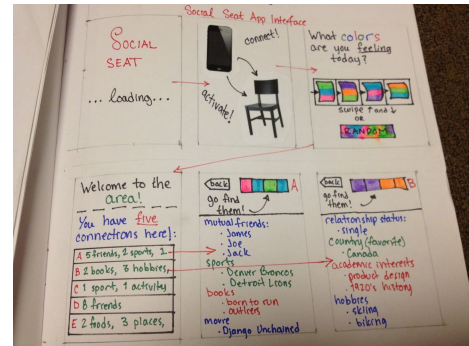 Social Seat App Interface
SOCIAL
SEAT
... loading...
connect!
activate!
What colors
are you feeling
today?
swipe ↑ and ↓
OR
RANDOM
Welcome to the
area!
You have five
connections here:
A 5 friends, 2 sports, 2
B 2 books, 3 hobbies,
C 1 sport, 1 activity
D 8 friends
E 2 foods, 3 places,
back
A
go find
them!
mutual friends:
· James
· Joe
· Jack
sports
· Denver Broncos
· Detroit Lions
books
· born to run
· outliers
movie
· Django Unchained
back
B
go find
them!
relationship status:
· single
country (favorite)
· Canada
academic interests
· product design
· 1920's history
hobbies
· skiing
· biking